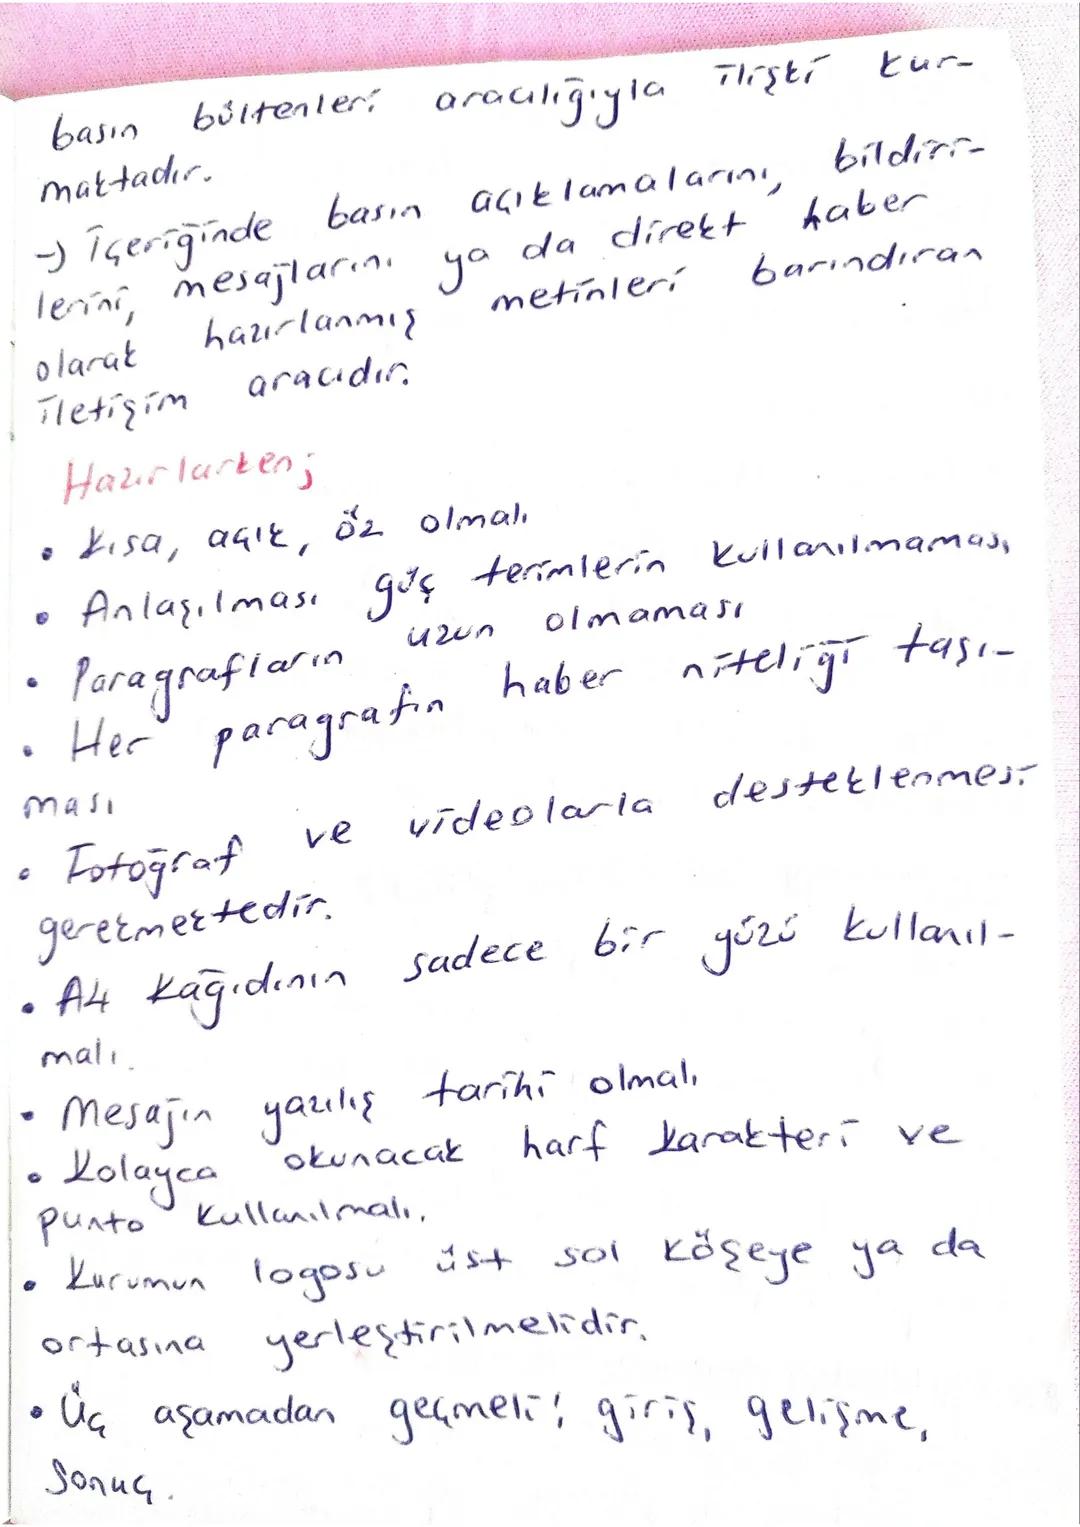 basın bültenleri aracılığıyla ilişki kur-
maktadır.
→ İçeriğinde basın açıklamalarını, bildiri-
lerini, mesajlarını ya da direkt haber
olarak hazırlanmış metinleri barındıran
iletişim aracıdır.
Hazırlarken;
• Kısa, açık, öz olmalı
• Anlaşılması güç terimlerin kullanılmaması
• Paragrafların uzun olmaması
• Her paragrafın haber niteliği taşı-
ması
• Fotoğraf ve videolarla desteklenmesi
gerekmektedir.
• A4 kağıdının sadece bir yüzü kullanıl-
malı.
• Mesajın yazılış tarihi olmalı
• Kolayca okunacak harf karakteri ve
punto kullanılmalı.
• Kurumun logosu üst sol köşeye ya da
ortasına yerleştirilmelidir.
• Üç aşamadan geçmeli; giriş, gelişme,
sonuç.